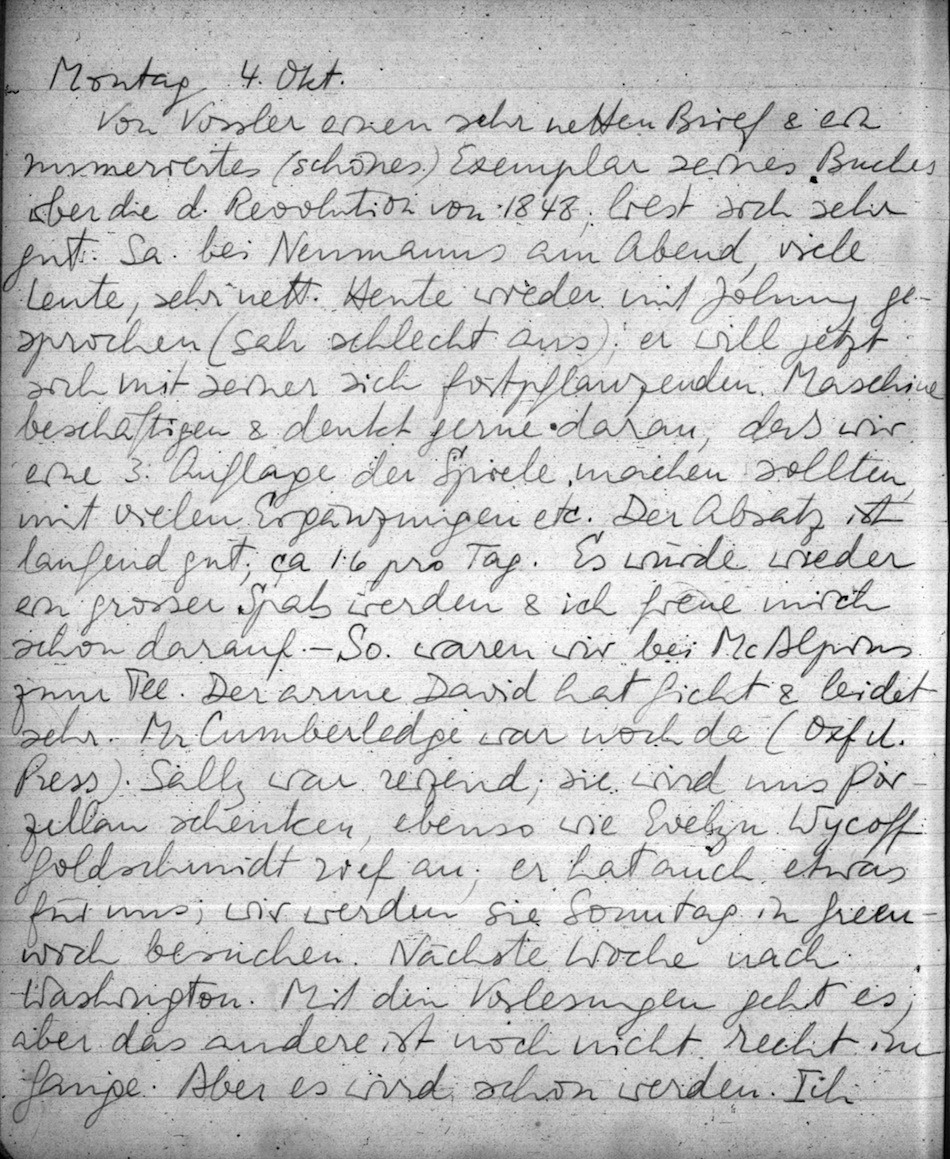 Montag 4. Okt.
Von Vossler einen sehr netten Brief & ein
nummeriertes (schönes) Exemplar seines Buches
über die d. Revolution von 1848, liest sich sehr
gut. Sa. bei Neumanns am Abend, viele
Leute, sehr nett. Heute wieder mit Johnny ge-
sprochen (sah schlecht aus); er will jetzt
sich mit seiner sich fortpflanzenden Maschine
beschäftigen & denkt gerne daran, dass wir
eine 3. Auflage der Spiele machen sollten,
mit vielen Ergänzungen etc. Der Absatz ist
laufend gut; ca 1.6 pro Tag. Es würde wieder
ein grosser Spass werden & ich freue mich
schon darauf. – So. waren wir bei McAlpins
zum Tee. Der arme David hat Gicht & leidet
sehr. Mr Cumberledge war noch da (Oxf. U.
Press). Sally war reizend; sie wird uns Por-
zellan schenken, ebenso wie Evelyn Wycoff
Goldschmidt rief an; er hat auch etwas
für uns; wir werden sie Sonntag in Green-
wich besuchen. Nächste Woche nach
Washington. Mit den Vorlesungen geht es,
aber das andere ist noch nicht recht im
Gange. Aber es wird schon werden. Ich